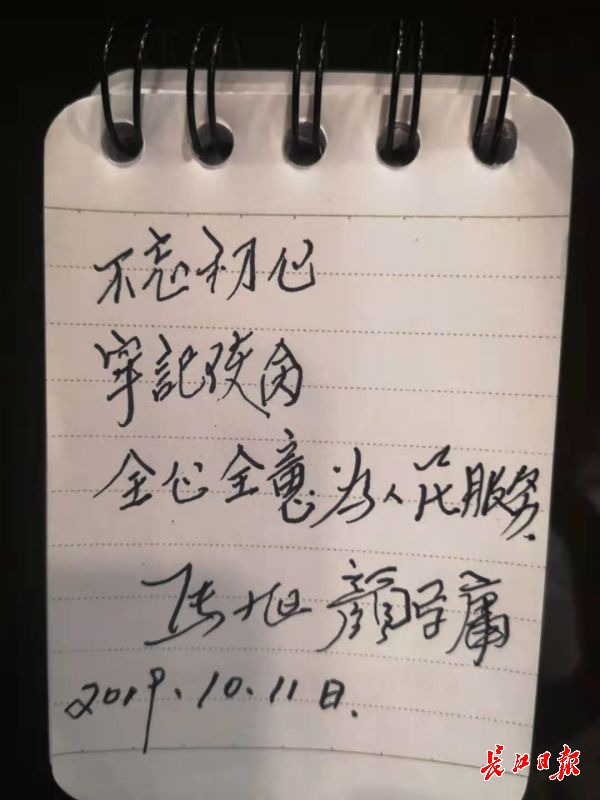 不忘初心
牢记使命
全心全意为人民服务.
张旭 颜学庸
2019.10.11日.
长江日报